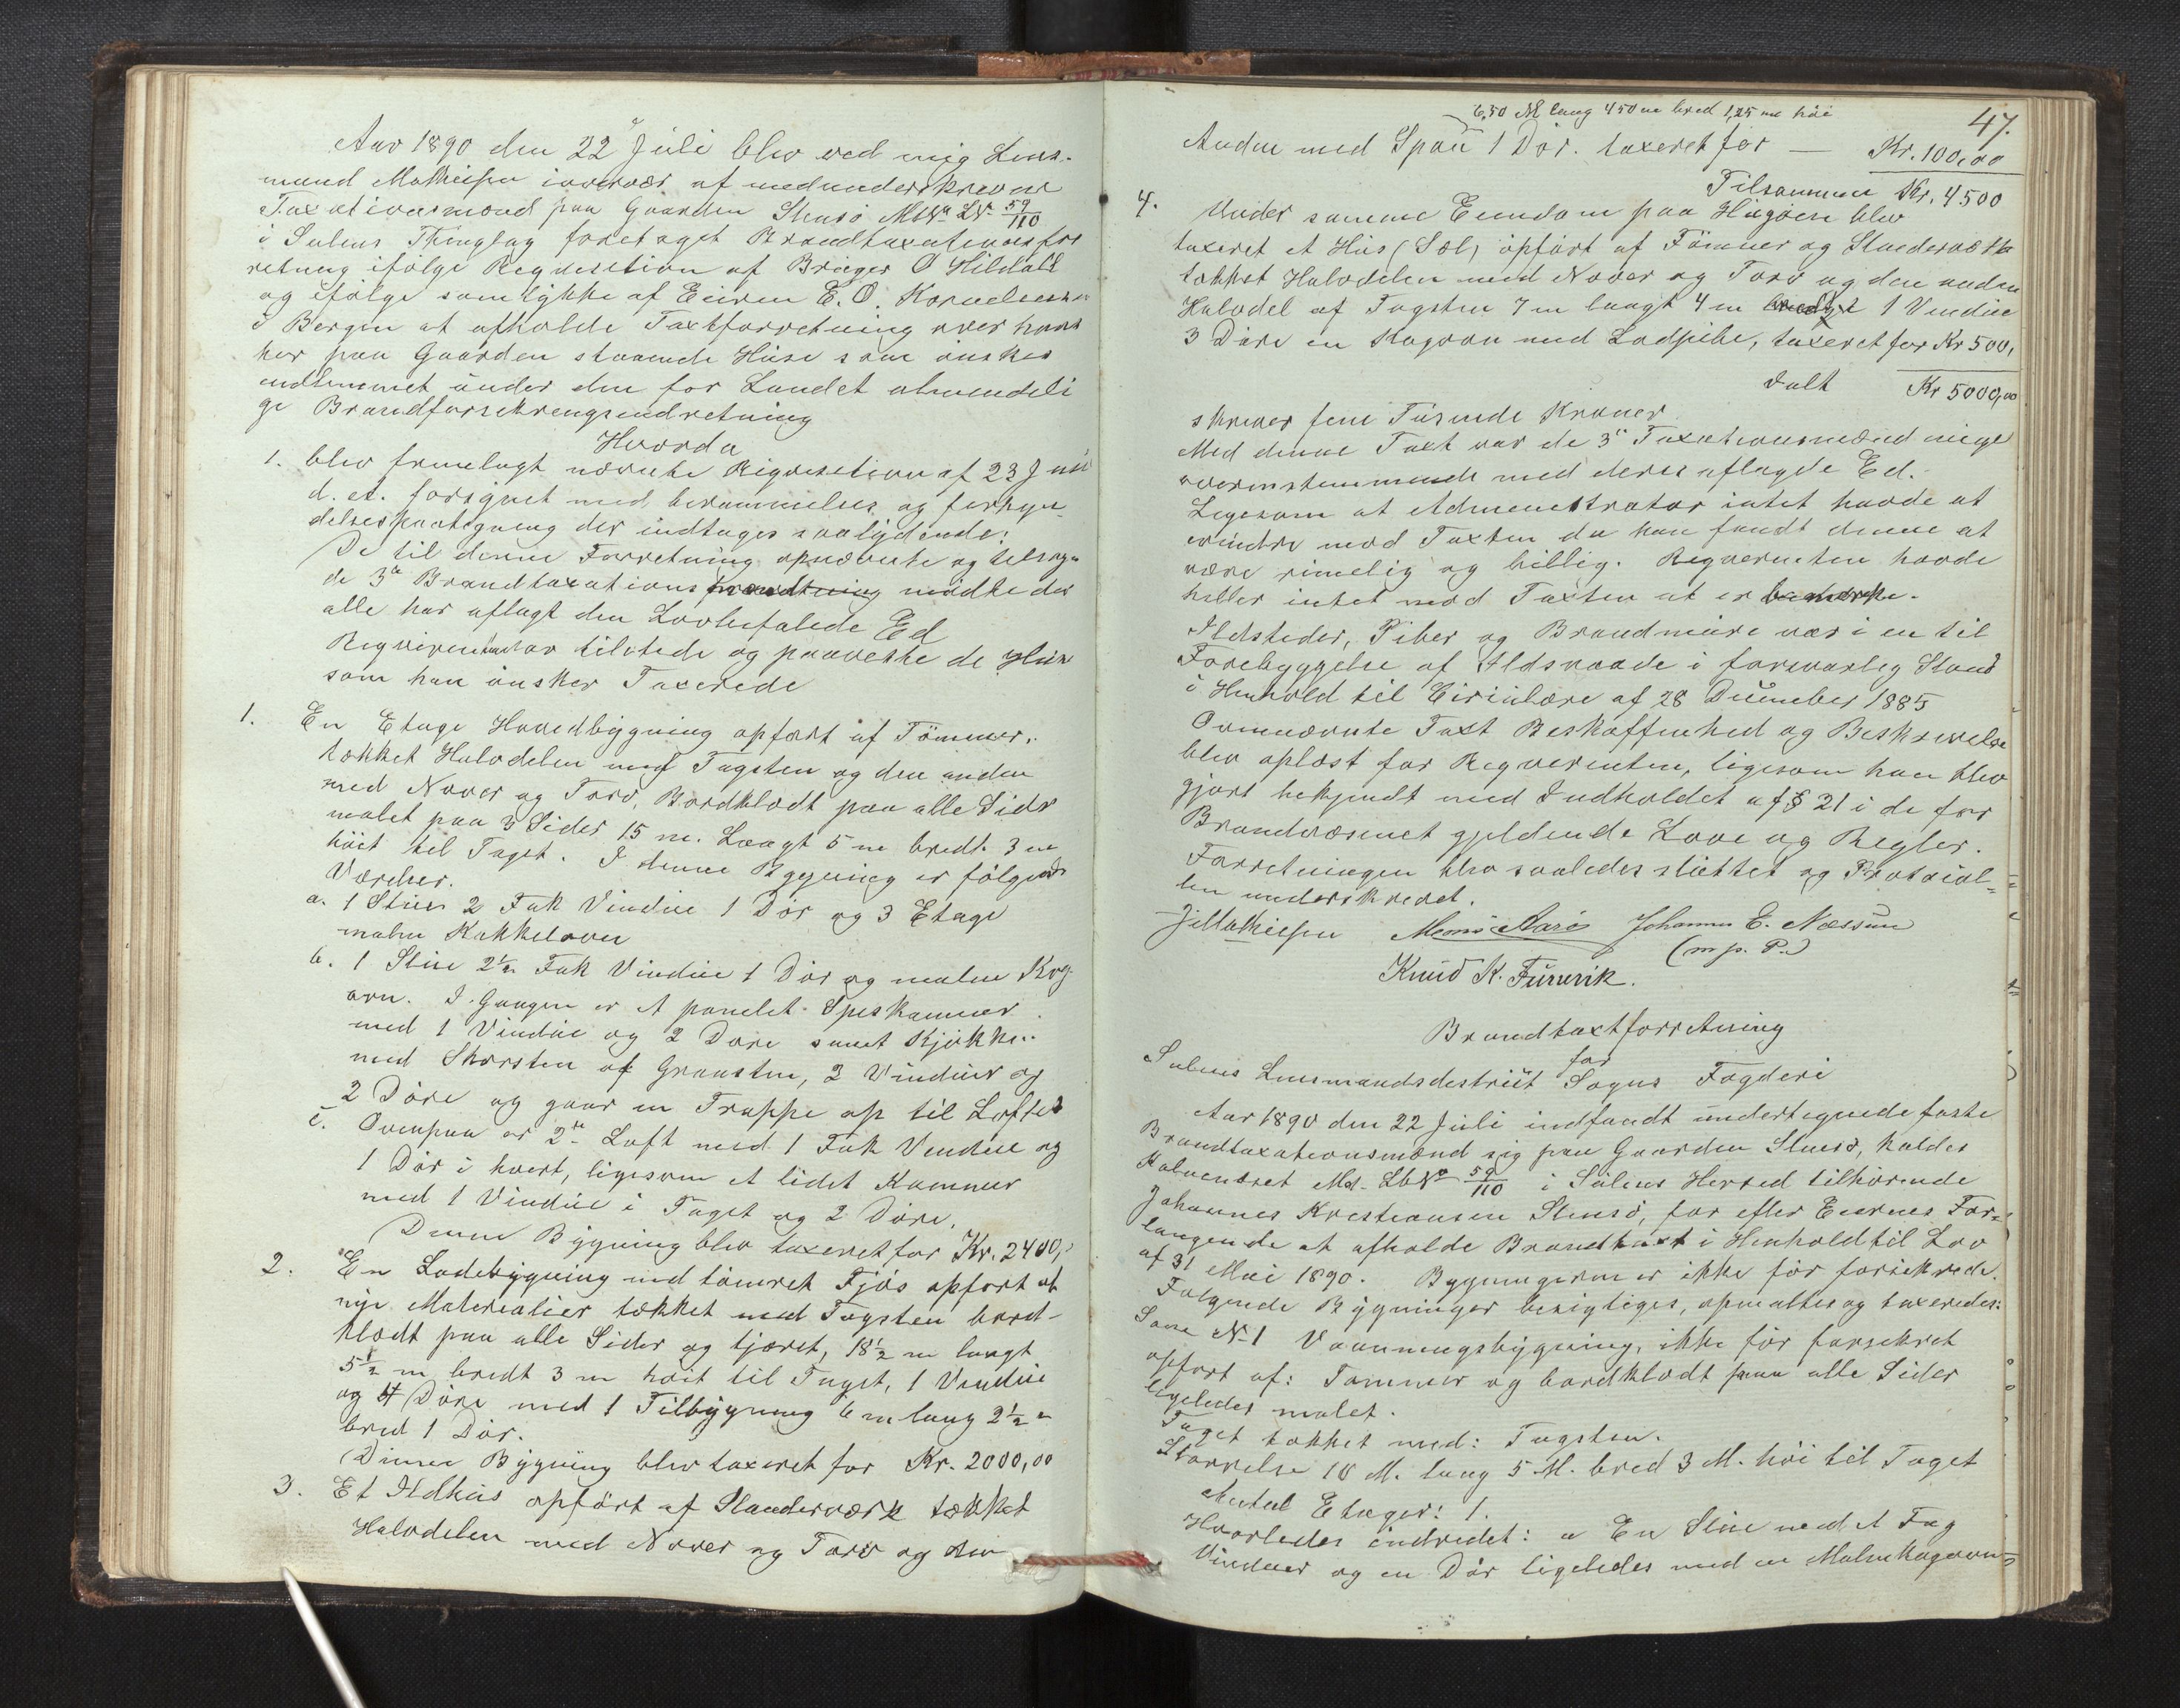 Aar 1890 den 22 Juli blev ved mig Lens-
mand Mathiesen iovervær af medunderskrevne
Taxationsmænd paa Gaarden Stensø M№ L№ 59/110
i Sulens Thinglag foretaget Brandtaxationsfor
retning ifølge Requisition af Bruger O Hildall
og ifølge samtykke af Eieren E. O. Kornelius
i Bergen at afholde Taxtforretning over hans
her paa Gaarden staaende Huse som ønskes
indlemmet under den for Landet almendeli
ge Brandforsikringsindretning
Hvorda
1. blev fremlagt nævnte Riqvisition af 23 Juni
d. et. forsynet med berammelses og forkyn-
delsespaategning der indtages saalydende:
De til denne Forretning opnævnte og tilsag-
de 3de Brandtaxations mødte der
alle har aflagt den Lovbefalede Ed
Reqvirenten var tilstede og paaviste de Huse
som han ønsker Taxerede
1. En Etage Hovedbygning opført af Tømmer,
tækket Halvdelen med Tagsten og den anden
med Næver og Torv, Bordklædt paa alle Sider
malet paa 3 Sider 15 m. Langt 5 m bredt 3 m
høit til Taget. I denne Bygning er følgende
Værelser.
a. 1 Stue 2 Fak Vindue 1 Dør og 3 Etage
malm Kakkelovn
b. 1 Stue 2½ Fak Vindue 1 Dør og malm Kog-
ovn. I Gangen er et panelet Spiskammer
med 1 Vindue og 2 Døre samt Kjøkken
med Skorsten af Graasten, 2 Vinduer og
2 Døre og gaar en Trappe op til Loftet
c. Ovenpaa er 2de Loft med 1 Fak Vindue og
1 Dør i hvert, ligesom et lidet Kammer
med 1 Vindue i Taget og 2 Døre.
Denne Bygning blev taxeret for Kr. 2400,"
2. En Ladebygning med tømret Fjøs opført af
nye Materialier tækket med Tagsten bord-
klædt paa alle Sider og tjæret, 18½ m langt
5½ m bredt 3 m høit til Taget, 1 Vindue
og 4 Døre med 1 Tilbygning 6 m lang 2½ m
bred 1 Dør.
Denne Bygning blev taxeret for Kr. 2000,00
3. Et Ildhus opført af Standerværk tækket
Halvdelen med Næver og Torv og den
47.
6,50 M lang 450 m bred 1,25 m høi
Anden med Spon 1 Dør. taxeret for — Kr. 100,00
Tilsammen Kr. 4500
4. Under samme Eiendom paa Hugøen blev
taxeret et Hus (Sæl) opført af Tømmer og Standerværk
tækket Halvdelen med Næver og Torv og den anden
Halvdel af Tagsten 7 m langt 4 m bredt 1 Vindue
3 Døre en Kogovn med Ladpibe, taxeret for Kr 500,
ialt Kr 5000,00
skriver fem Tusinde Kroner
Med denne Taxt var de 3de Taxationsmænd enige
overensstemmende med deres aflagde Ed.
Ligesom at Administrator intet havde at
erindre mod Taxten da han fandt denne at
være rimelig og billig. Reqverenten havde
heller intet mod Taxten at bemærke.
Ildsteder, Piber og Brandmure var i en til
Forebyggelse af Ildsvaade i forsvarlig Stand
i Henhold til Cirkulære af 28 December 1885
Ovennævnte Taxt Beskaffenhed og Beskrivelse
blev oplæst for Reqverenten, ligesom han blev
gjort bekjendt med Indholdet af § 21 i de for
Brandvæsenet gjeldende Love og Regler.
Forretningen blev saaledes sluttet og Protocol-
len underskrevet.
J Mathiesen Mons Aarø Johannes E. Næssun
(m. p. P.)
Knud K. Fururik.
Brandtaxtforretning
for
Sulens Lensmandsdestrikt Sogns Fogderi
Aar 1890 den 22 Juli indfandt undertegnede faste
Brandtaxationsmænd sig paa Gaarden Stensø, kaldes
Kalvenæset Md. Lb№ 59/110 i Sulens Herred tilhørende
Johannes Kristiansen Stensø, for efter Eierens For-
langende at afholde Brandtaxt i Henhold til Lov
af 31 Mai 1890. Bygningerne er ikke før forsikrede.
Følgende Bygninger besigtiges, opmaaltes og taxeredes:
Som № 1 Vaaningsbygning, ikke før forsikret
opført af: Tømmer og bordklædt paa alle Sider
ligeledes malet.
Taget tækket med: Tagsten.
Størrelse 10 M. lang 5 M. bred 3 M. høi til Taget
Antal Etager: 1.
Hvorledes indredet: a En Stue med et Fag
Vinduer og en Dør ligeledes med en Malmkogeovn